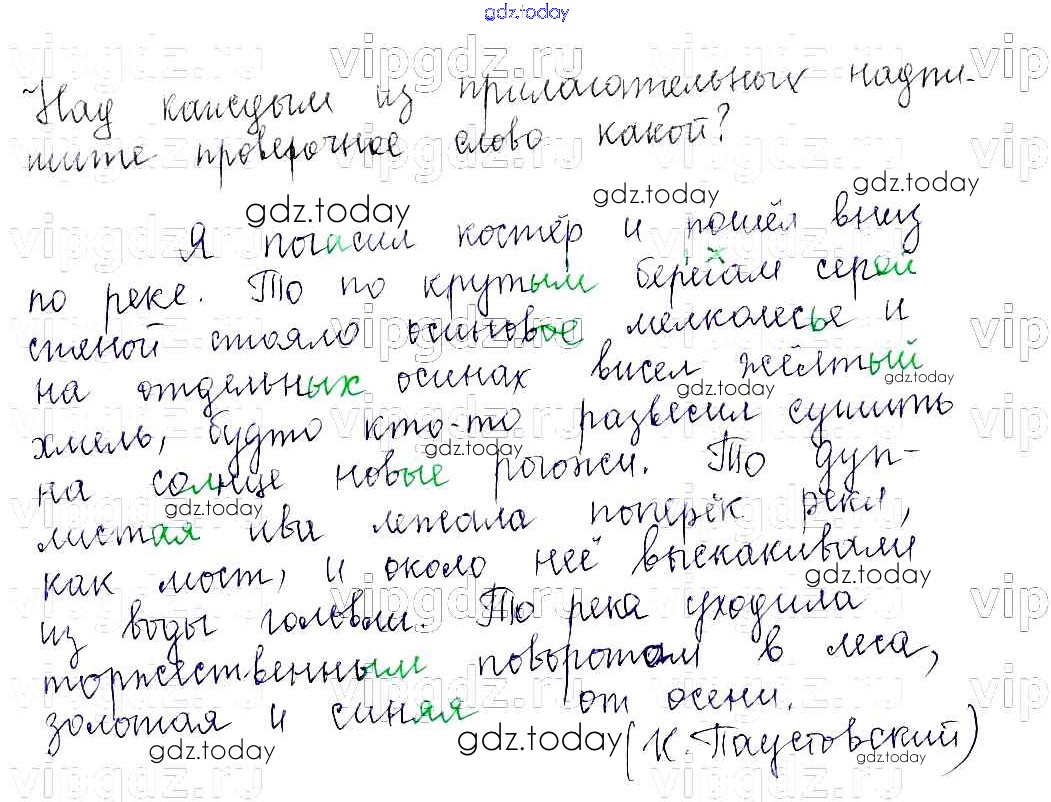 gdz.today
Над каждым из прилагательных надпи-
шите проверочное слово какой?
Я погасил костёр и пошёл вниз
по реке. То по крутым берегам серой
стеной стояло осиновое мелколесье и
на отдельных осинах висел жёлтый
хмель, будто кто-то развесил сушить
на солнце новые рогожи. То дуп-
листая ива лежала поперёк реки,
как мост, и около неё выскакивали
из воды головли. То река уходила
торжественным поворотом в леса,
золотая и синяя от осени.
(К. Паустовский)